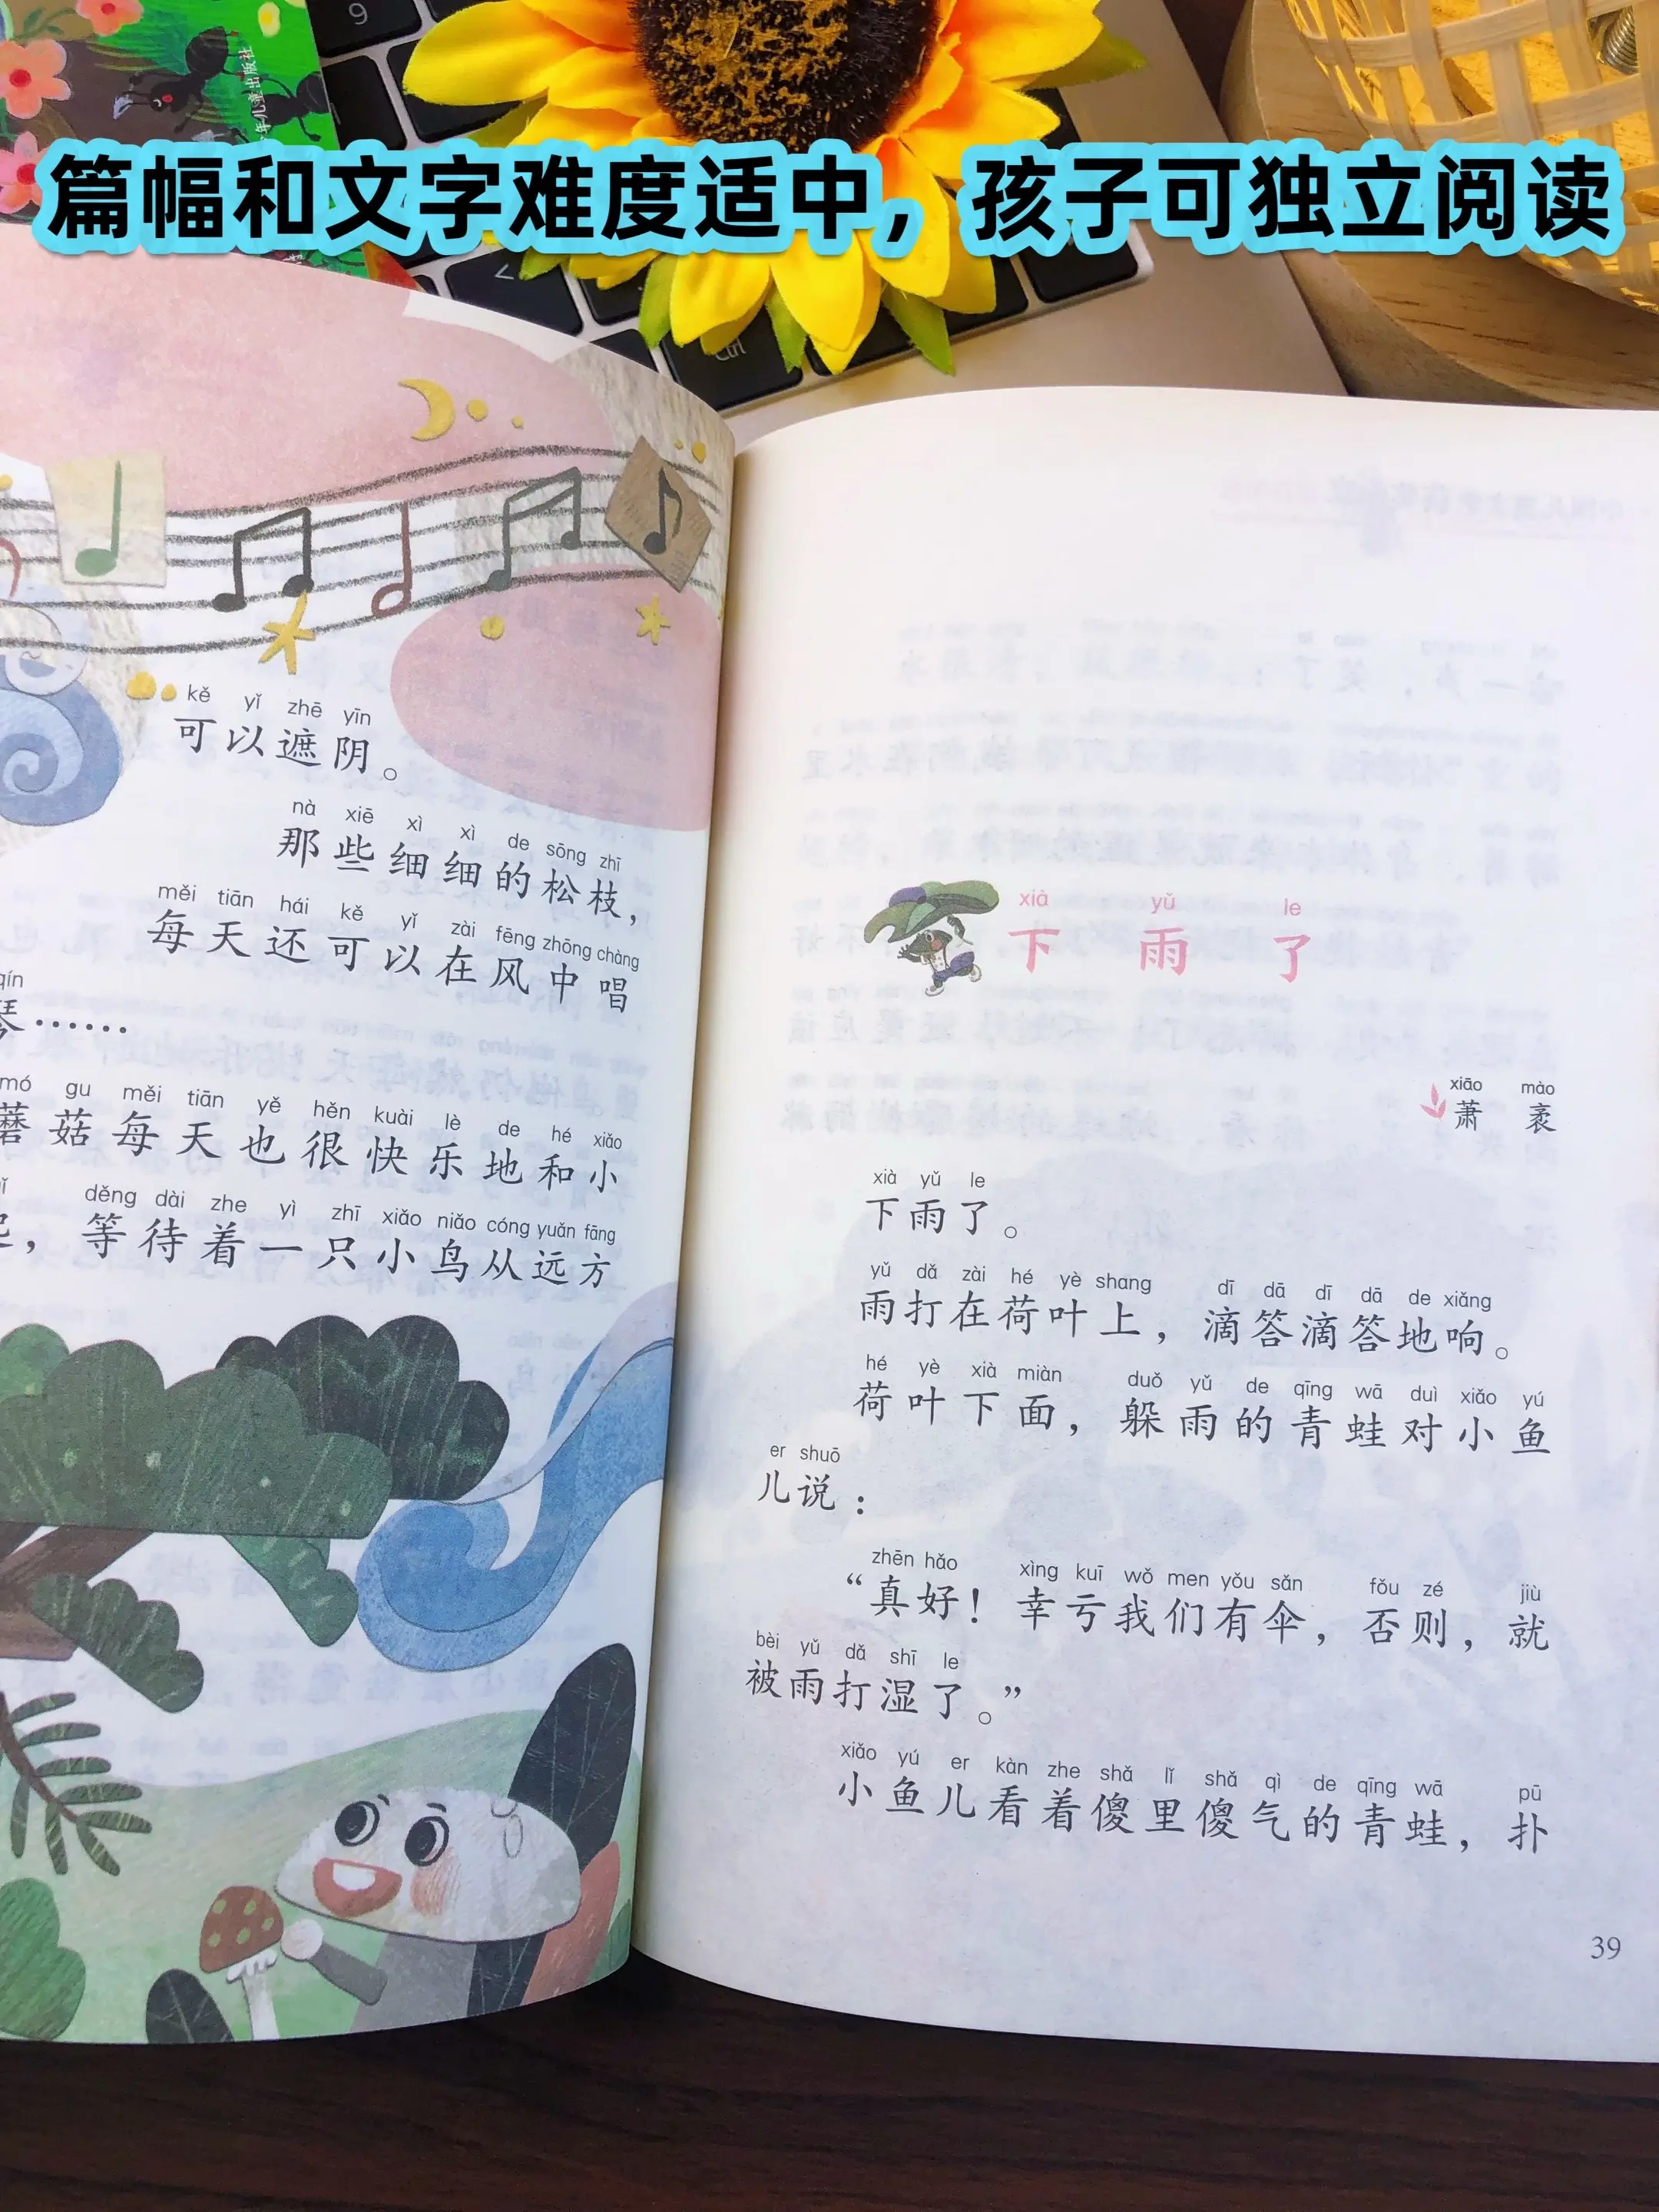 年儿童出版社
篇幅和文字难度适中，孩子可独立阅读
9
Ctrl
kě yǐ zhē yīn
可以遮阴。
nà xiē xì xì de sōng zhī
那些细细的松枝，
měi tiān hái kě yǐ zài fēng zhōng chàng
每天还可以在风中唱
qín
琴……
mó gu měi tiān yě hěn kuài lè de hé xiǎo
蘑菇每天也很快乐地和小
děng dài zhe yì zhī xiǎo niǎo cóng yuǎn fāng
，等待着一只小鸟从远方
xià yǔ le
下雨了
xiāo mào
萧袤
xià yǔ le
下雨了。
yǔ dǎ zài hé yè shang dī dā dī dā de xiǎng
雨打在荷叶上，滴答滴答地响。
hé yè xià miàn duǒ yǔ de qīng wā duì xiǎo yú
荷叶下面，躲雨的青蛙对小鱼
er shuō
儿说：
zhēn hǎo xìng kuī wǒ men yǒu sǎn fǒu zé jiù
“真好！幸亏我们有伞，否则，就
bèi yǔ dǎ shī le
被雨打湿了。”
xiǎo yú er kàn zhe shǎ lǐ shǎ qì de qīng wā pū
小鱼儿看着傻里傻气的青蛙，扑
39